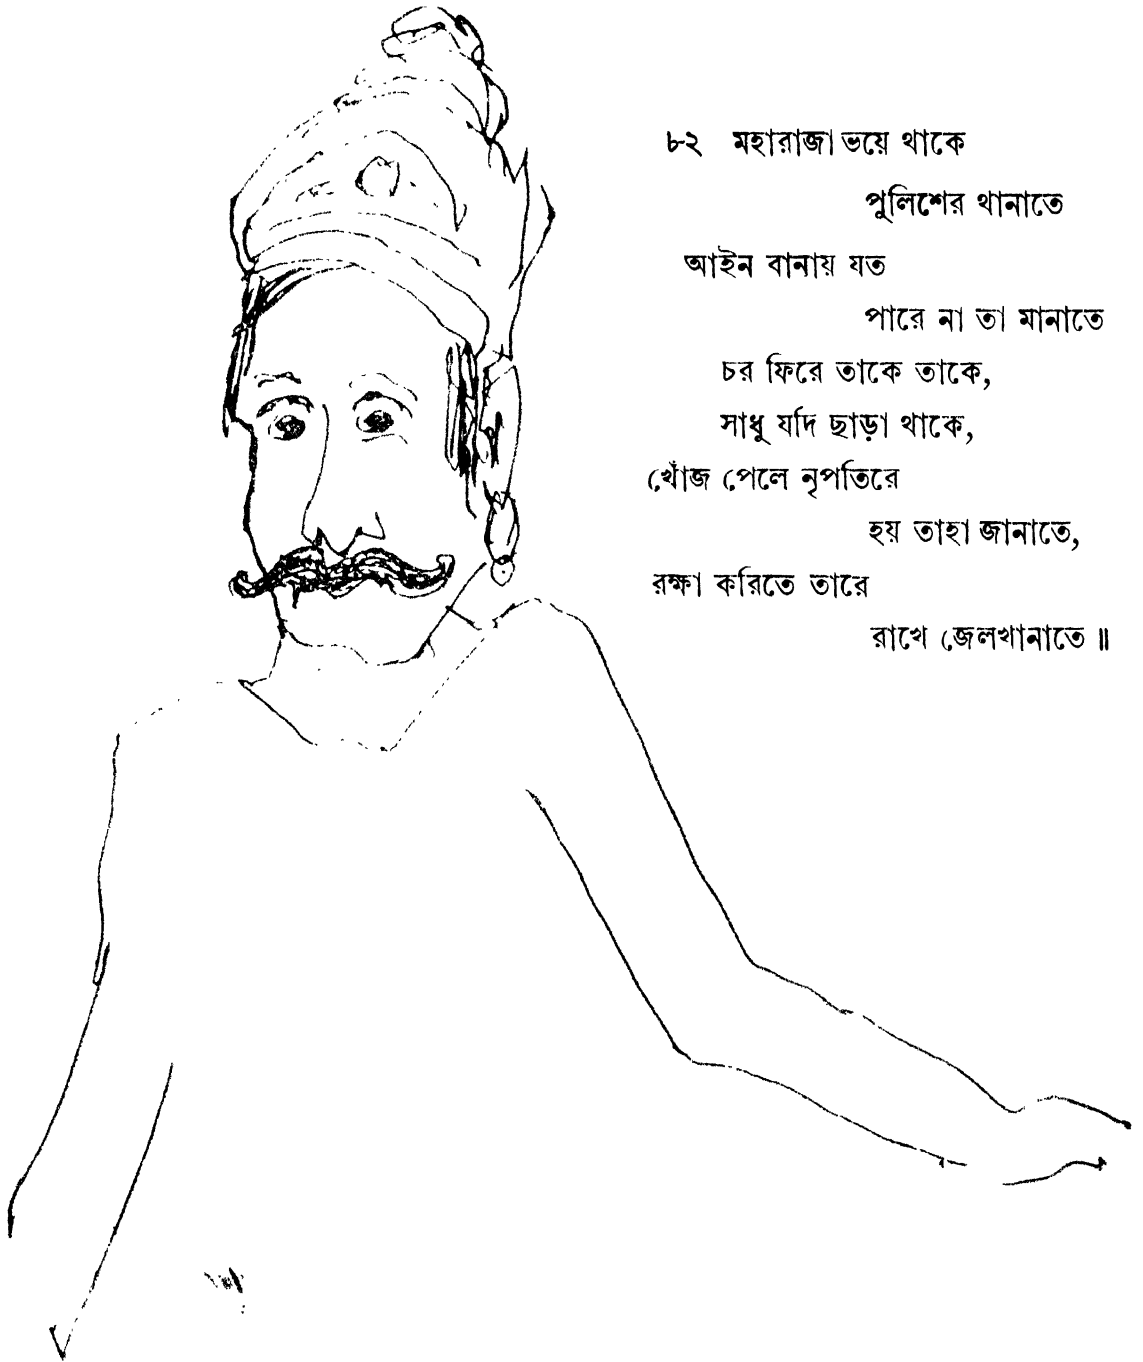 ৮২ মহারাজা ভয়ে থাকে
পুলিশের থানাতে
আইন বানায় যত
পারে না তা মানাতে
চর ফিরে তাকে তাকে,
সাধু যদি ছাড়া থাকে,
খোঁজ পেলে নৃপতিরে
হয় তাহা জানাতে,
রক্ষা করিতে তারে
রাখে জেলখানাতে॥